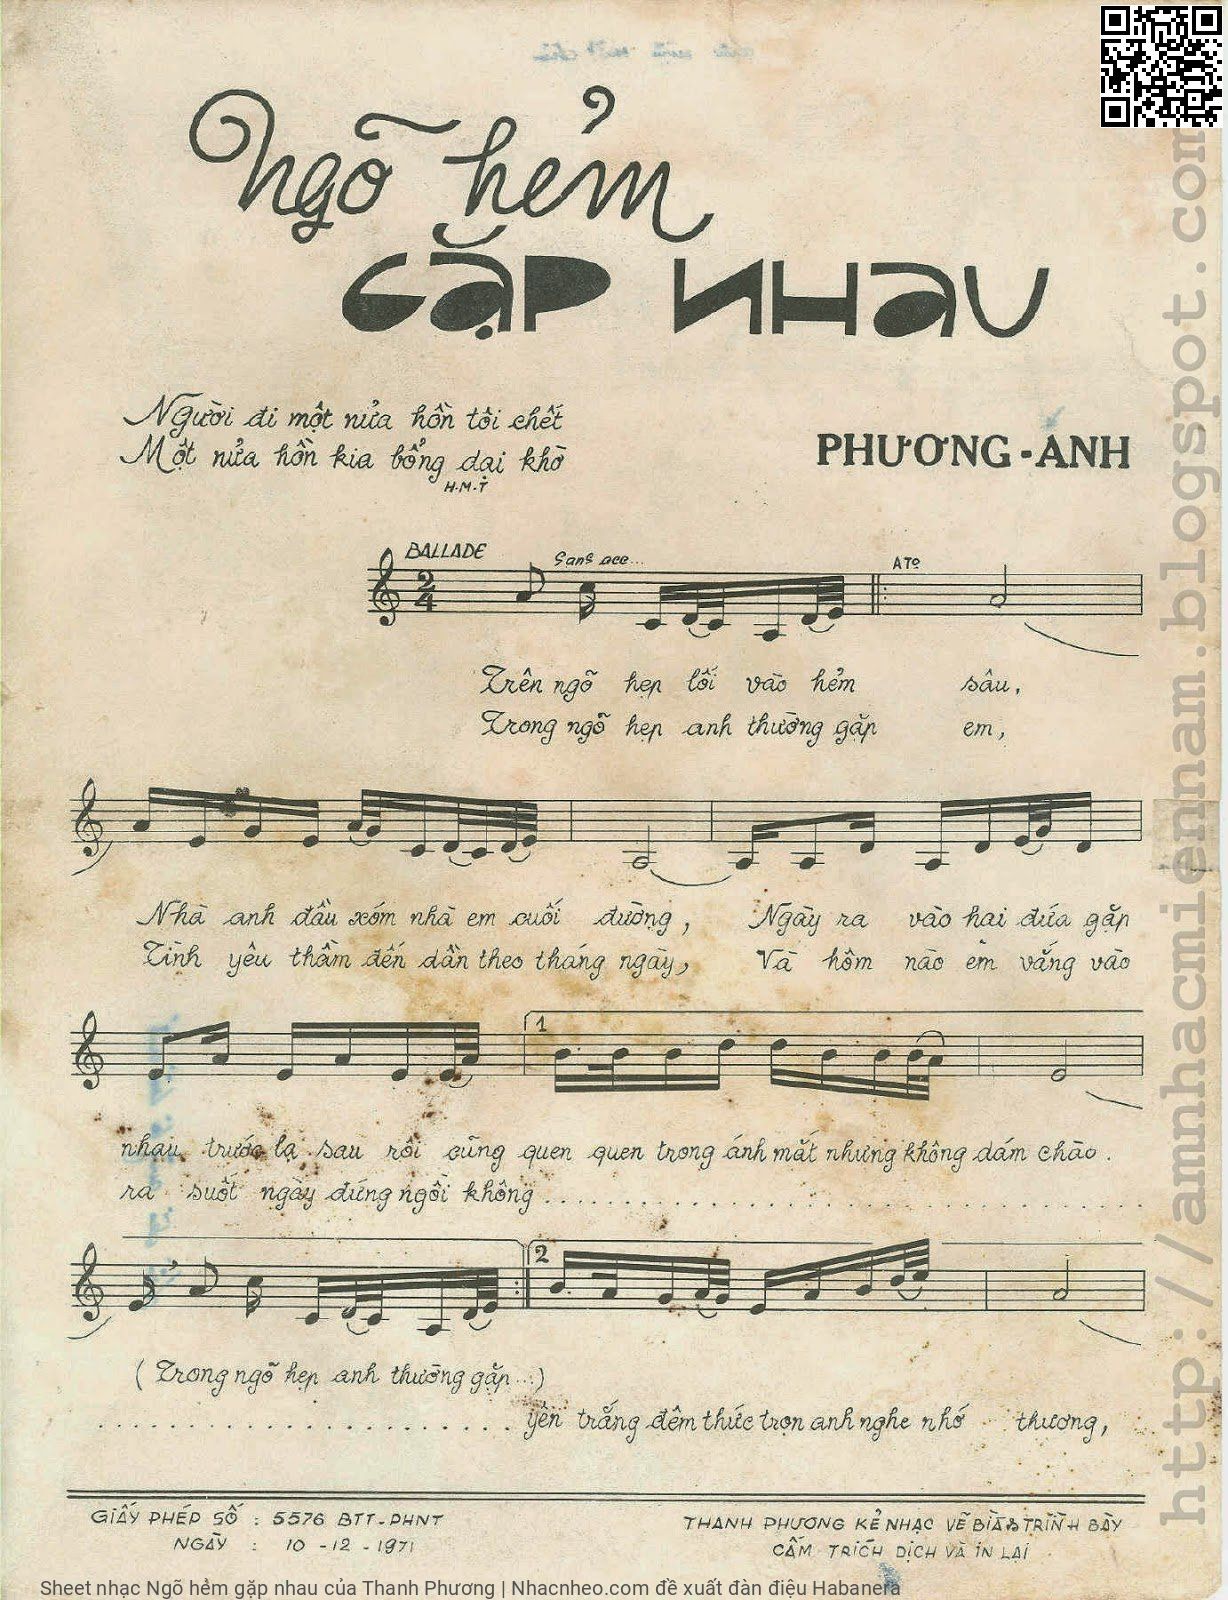 Ngõ hẻm
gặp nhau
Người đi một nửa hồn tôi chết
Một nửa hồn kia bổng dại khờ
H.M.T
PHƯƠNG-ANH
BALLADE
Sans acc...
ATo
2
4
Trên ngõ hẹp lối vào hẻm sâu,
Trong ngõ hẹp anh thường gặp em,
Nhà anh đầu xóm nhà em cuối đường, Ngày ra vào hai đứa gặp
Tình yêu thầm đến dần theo tháng ngày, Và hôm nào em vắng vào
1
nhau trước lạ sau rồi cũng quen quen trong ánh mắt nhưng không dám chào.
ra suốt ngày đứng ngồi không
2
(Trong ngõ hẹp anh thường gặp...)
yên trắng đêm thức trọn anh nghe nhớ thương,
GIẤY PHÉP SỐ : 5576 BTT-PHNT
NGÀY : 10-12-1971
THANH PHƯƠNG KẺ NHẠC VẼ BÌA & TRÌNH BÀY
CẤM TRÍCH DỊCH VÀ IN LẠI
http://amnhacmiennam.blogspot.com
Sheet nhạc Ngõ hẻm gặp nhau của Thanh Phương | Nhacnheo.com đề xuất đàn điệu Habanera